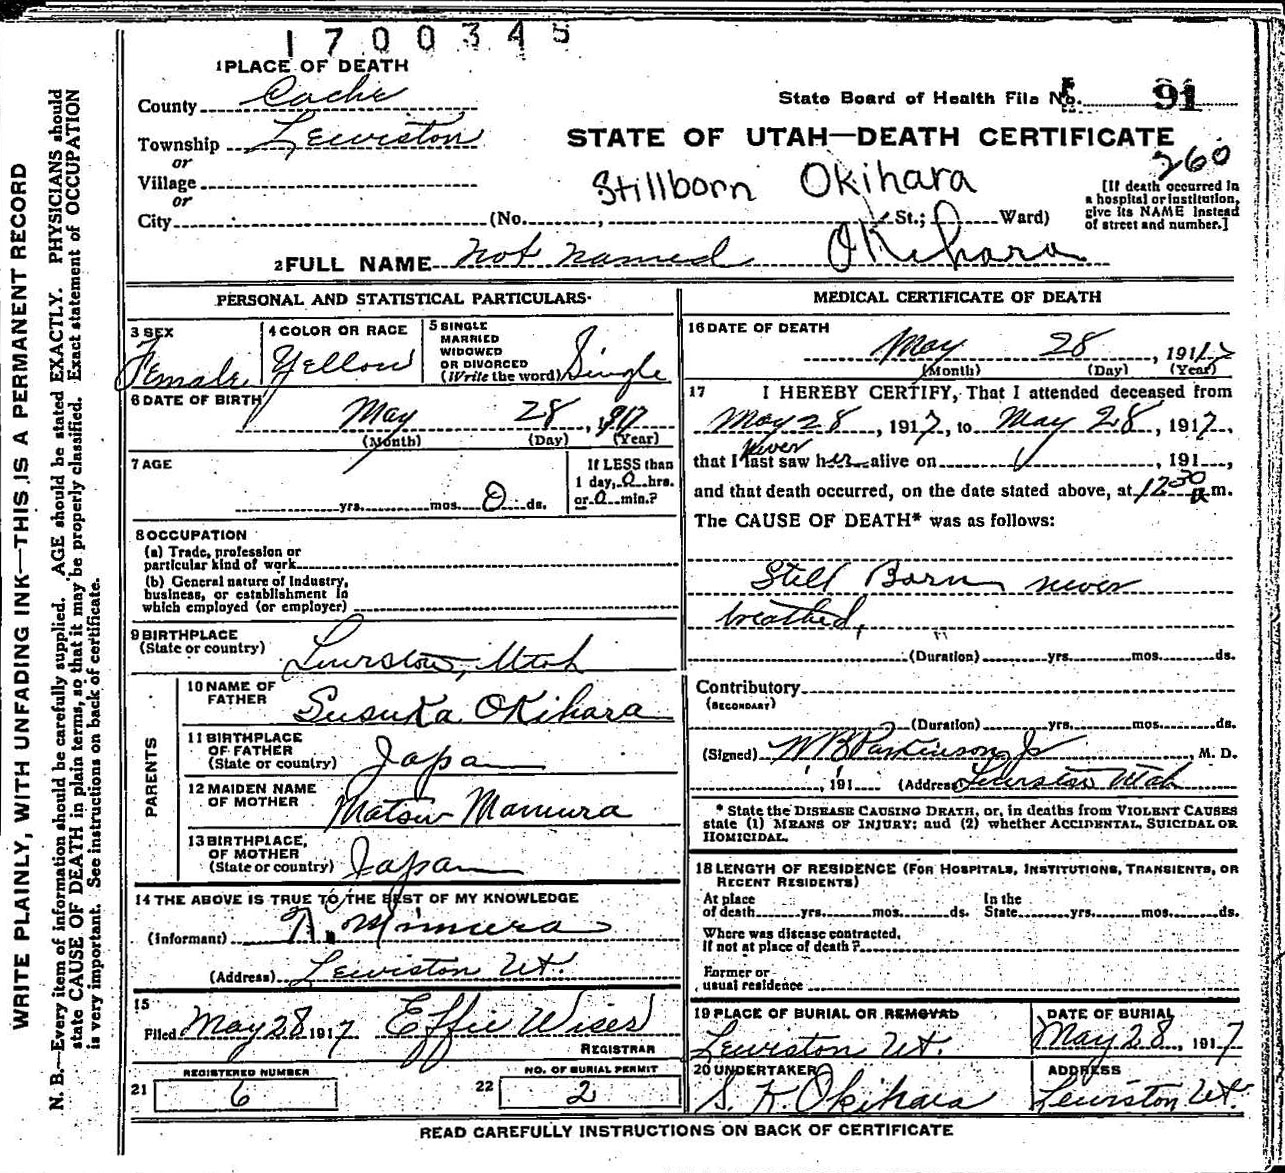 1700345
1 PLACE OF DEATH
County Cache
State Board of Health File No. 91
Township Lewiston
STATE OF UTAH—DEATH CERTIFICATE
or
260
Village
Stillborn Okihara
or
City (No. , St.; Ward)
[If death occurred in
a hospital or institution,
give its NAME instead
of street and number.]
2 FULL NAME not named Okihara
PERSONAL AND STATISTICAL PARTICULARS
3 SEX
Female
4 COLOR OR RACE
Yellow
5 SINGLE
MARRIED
WIDOWED
OR DIVORCED
(Write the word) Single
6 DATE OF BIRTH
May 28, 1917
(Month) (Day) (Year)
7 AGE
yrs. mos. 0 ds.
If LESS than
1 day, 0 hrs.
or 0 min.?
8 OCCUPATION
(a) Trade, profession or
particular kind of work
(b) General nature of industry,
business, or establishment in
which employed (or employer)
9 BIRTHPLACE
(State or country) Lewiston, Utah
PARENTS
10 NAME OF
FATHER Susuka Okihara
11 BIRTHPLACE
OF FATHER
(State or country) Japan
12 MAIDEN NAME
OF MOTHER Matsu Mamura
13 BIRTHPLACE,
OF MOTHER
(State or country) Japan
14 THE ABOVE IS TRUE TO THE BEST OF MY KNOWLEDGE
(Informant) N. Mimura
(Address) Lewiston Ut.
15
Filed May 28 1917 Effie Wiser
REGISTRAR
REGISTERED NUMBER
21 6
NO. OF BURIAL PERMIT
22 2
MEDICAL CERTIFICATE OF DEATH
16 DATE OF DEATH
May 28, 1917
(Month) (Day) (Year)
17 I HEREBY CERTIFY, That I attended deceased from
May 28, 1917, to May 28, 1917,
never
that I last saw her alive on , 191 ,
and that death occurred, on the date stated above, at 12 30 a m.
The CAUSE OF DEATH* was as follows:
Still Born never
breathed,
(Duration) yrs. mos. ds.
Contributory
(SECONDARY)
(Duration) yrs. mos. ds.
(Signed) W B Parkinson Jr M. D.
, 191 (Address) Lewiston Utah
* State the DISEASE CAUSING DEATH, or, in deaths from VIOLENT CAUSES
state (1) MEANS OF INJURY; and (2) whether ACCIDENTAL, SUICIDAL OR
HOMICIDAL.
18 LENGTH OF RESIDENCE (FOR HOSPITALS, INSTITUTIONS, TRANSIENTS, OR
RECENT RESIDENTS)
At place
of death yrs. mos. ds.
In the
State yrs. mos. ds.
Where was disease contracted,
if not at place of death?
Former or
usual residence
19 PLACE OF BURIAL OR REMOVAL
Lewiston Ut.
DATE OF BURIAL
May 28, 1917
20 UNDERTAKER
S. K. Okihara
ADDRESS
Lewiston Ut.
READ CAREFULLY INSTRUCTIONS ON BACK OF CERTIFICATE
WRITE PLAINLY, WITH UNFADING INK—THIS IS A PERMANENT RECORD
N. B.—Every item of information should be carefully supplied. AGE should be stated EXACTLY. PHYSICIANS should
state CAUSE OF DEATH in plain terms, so that it may be properly classified. Exact statement of OCCUPATION
is very important. See instructions on back of certificate.